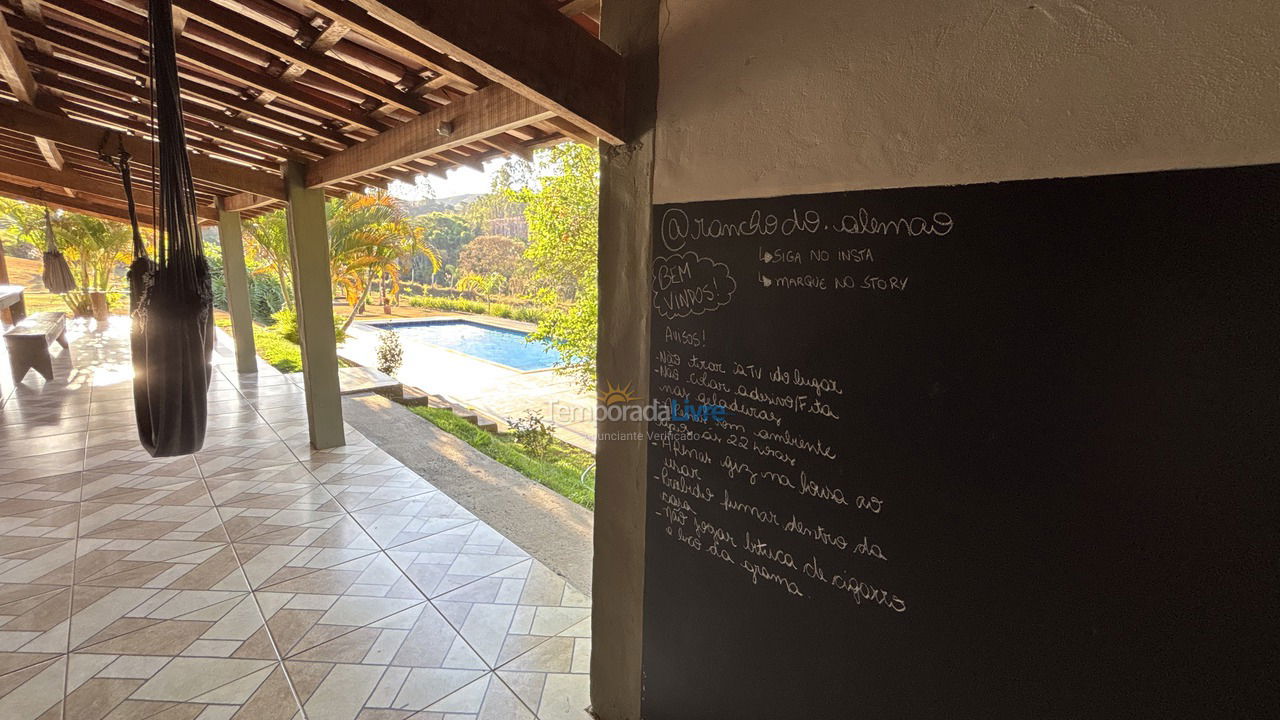 @rancho.do.alemao
↳ SIGA NO INSTA
↳ MARQUE NO STORY
BEM
VINDOS!
AVISOS!
- Não tirar a TV do lugar
- Não colar adesivo/Fita
nas geladeiras
som ambiente
após às 22 horas
- Apenas giz na lousa ao
usar
- Proibido fumar dentro da
casa
- Não jogar bituca de cigarro
e lixo da grama.
TemporadaLivre
Anunciante Verificado